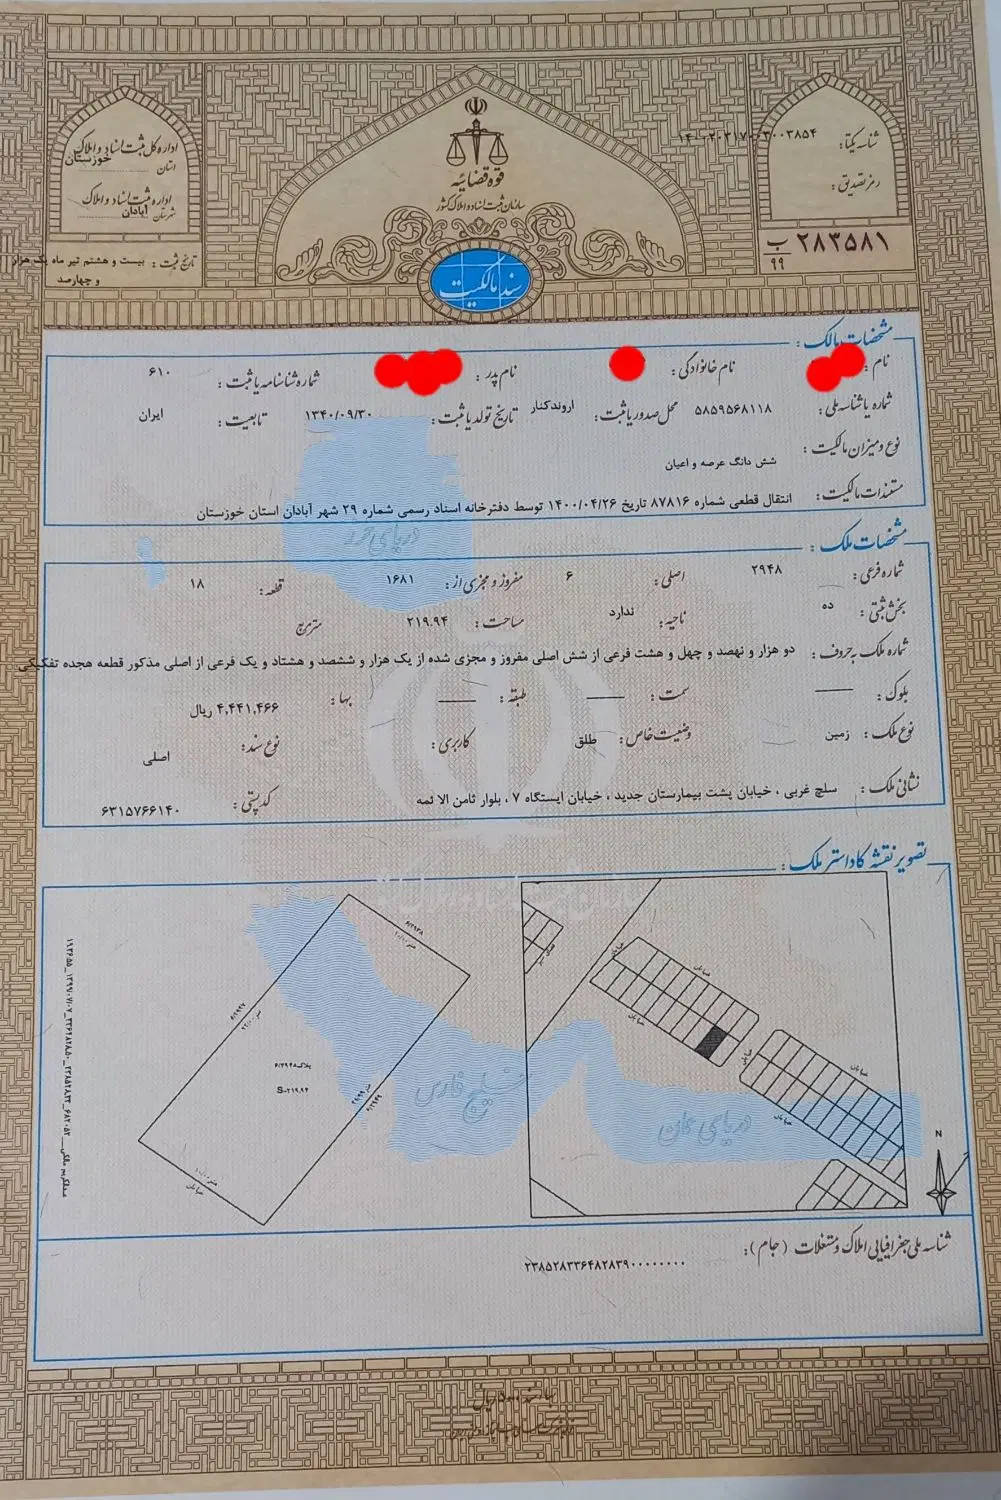 اداره کل ثبت اسناد و املاک
استان خوزستان
اداره ثبت اسناد و املاک
شهرستان آبادان
تاریخ ثبت : بیست و هشتم تیر ماه یک هزار
و چهارصد
قوه قضائیه
سازمان ثبت اسناد و املاک کشور
سند مالکیت
شناسه یکتا:
رمز تصدیق :
۲۸۳۵۸۱ ب ۹۹
مشخصات مالک :
نام : نام خانوادگی : نام پدر : شماره شناسنامه یا ثبت : ۶۱۰
شماره یا شناسه ملی : ۵۸۵۹۵۶۸۱۱۸ محل صدور یا ثبت : اروندکنار تاریخ تولد یا ثبت : ۱۳۴۰/۰۹/۳۰ تابعیت : ایران
نوع و میزان مالکیت : شش دانگ عرصه و اعیان
مستندات مالکیت : انتقال قطعی شماره ۸۷۸۱۶ تاریخ ۱۴۰۰/۰۴/۲۶ توسط دفترخانه اسناد رسمی شماره ۲۹ شهر آبادان استان خوزستان
دریای خزر
مشخصات ملک :
شماره فرعی : ۲۹۴۸ اصلی : ۶ مفروز و مجزی از : ۱۶۸۱ قطعه : ۱۸
بخش ثبتی : ده ناحیه : ندارد مساحت : ۲۱۹.۹۴ مترمربع
شماره ملک به حروف : دو هزار و نهصد و چهل و هشت فرعی از شش اصلی مفروز و مجزی شده از یک هزار و ششصد و هشتاد و یک فرعی از اصلی مذکور قطعه هجده تفکیکی
بلوک : سمت : طبقه : بها : ۴,۴۴۱,۴۶۶ ریال
نوع ملک : زمین وضعیت خاص : طلق کاربری : نوع سند : اصلی
نشانی ملک : سلچ غربی ، خیابان پشت بیمارستان جدید ، خیابان ایستگاه ۷ ، بلوار ثامن الا ئمه کد پستی : ۶۳۱۵۷۶۶۱۴۰
تصویر نقشه کاداستر ملک :
۶/۲۹۳۸
پلاک۶/۲۹۴۸
S=۲۱۹.۹۴
۶/۲۹۴۹
خیابان
خیابان
خیابان
خیابان
خیابان
خیابان
خیابان
N
خلیج فارس
دریای عمان
شناسه ملی جغرافیایی املاک و مستغلات (جام):
۲۳۸۵۲۸۳۳۶۴۸۲۸۳۹۰۰۰۰۰۰۰۰